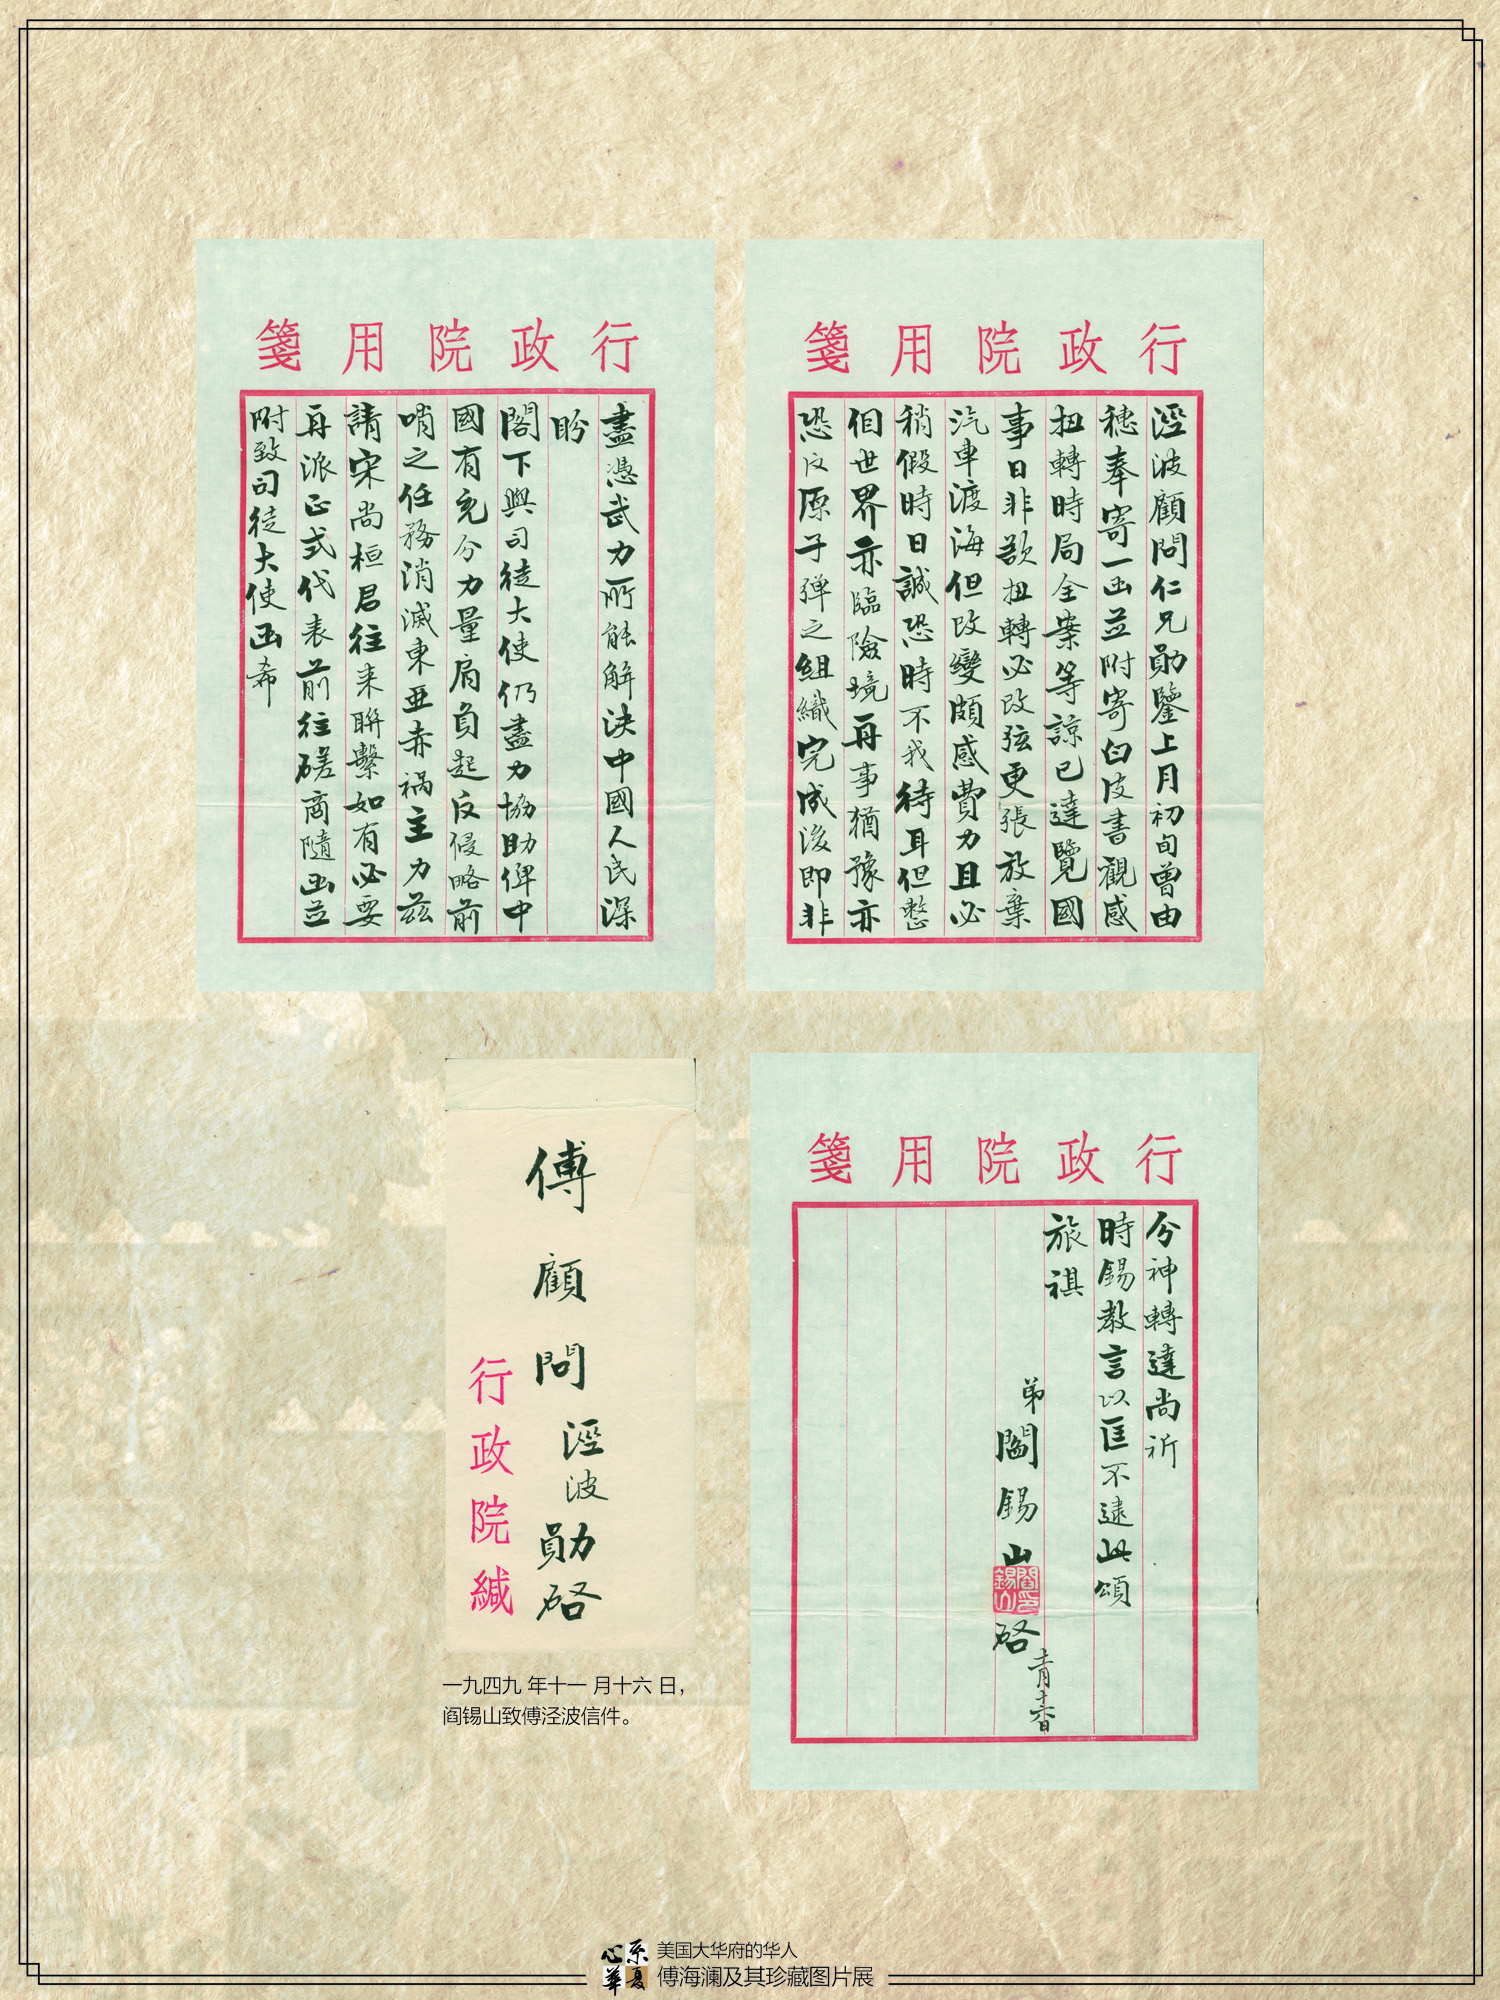 行政院用箋
涇波顧問仁兄勛鑒上月初旬曾由
穗奉寄一函並附寄白皮書觀感
扭轉時局全案等諒已達覽國
事日非欲扭轉必改弦更張放棄
汽車渡海但改變頗感費力且必
稍假時日誠恐時不我待耳但整
個世界亦臨險境再事猶豫亦
恐反原子彈之組織完成後即非
行政院用箋
盡憑武力所能解決中國人民深
盼
閣下與司徒大使仍盡力協助俾中
國有充分力量肩負起反侵略前
哨之任務消滅東亞赤禍主力茲
請宋尚桓君往來聯繫如有必要
再派正式代表前往磋商隨函並
附致司徒大使函希
行政院用箋
分神轉達尚祈
時錫教言以匡不逮此頌
旅祺
弟閻錫山啓
閻錫山印
十一月十六日
傅顧問涇波勛啓
行政院緘
一九四九年十一月十六日，
阎锡山致傅泾波信件。
心系华夏
美国大华府的华人
傅海澜及其珍藏图片展